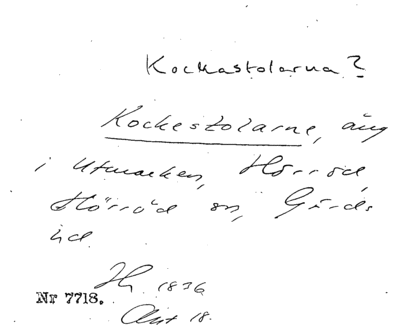 Kockastolarna?
Kockestolarne, äng
i Utmarken, Hörröd,
Hörröd sn, Gärds
hd.
Hy 1836
Akt 18.
Nr 7718.